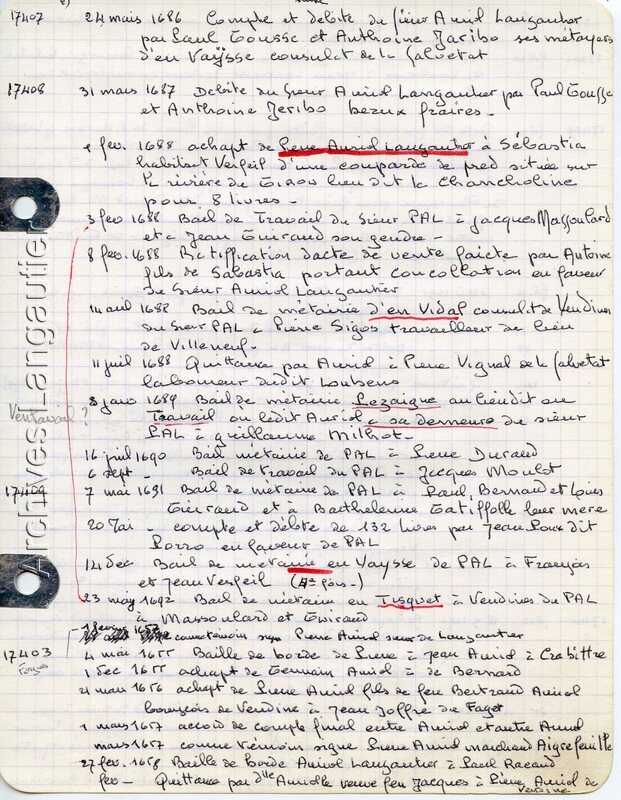 17407 24 mais 1686 Compte et debite du sieur Auriol Langautier
par Paul Tousse et Anthoine Jaribo ses métayers
d'en Vaÿsse consulat de la Salvetat
17408 31 mars 1687 Debite du Sieur Auriol Langautier par Paul Tousse
et Anthoine Jeribo beaux fraires -
1 fev. 1688 achapt de Pierre Auriol Langautier à Sébastia
habitant Verfeil d'une couparde de pred située sur
la rivière du Girou lieu dit la Chancholine
pour 8 livres -
3 fev 1688 Bail de Travail du Sieur PAL à Jacques Massoulard
et a Jean Guiraud son gendre -
8 fev. 1688 Ratiffication d'acte de vente faicte par Antoine
fils de Sabastia portant concollation en faveur
du Sieur Auriol Langautier
14 avril 1688 Bail de métairie d'en Vidal consulat de Vendines
du Sieur PAL à Pierre Sigos travailleur de lieu
de Villeneuf.
11 juil 1688 Quittance par Auriol à Pierre Vignal de la Salvetat
laboureur dudit Loubens
8 janv 1689 Bail de métairie Lezaigue au liedit ou
Ventavail ? Travail ou ledit Auriol a sa demeure du sieur
PAL à guillaume Milhot -
16 juil 1690 Bail métairie de PAL à Pierre Durand
6 sept - Bail de travail du PAL à Jacques Moulet
17409 7 mai 1691 Bail de métairie de PAL à Paul, Bernard et Louis
Guiraud et à Barthelenne Gatiffolle leur mère
20 Mai - compte et débite de 132 livres par Jean Poux dit
Porro en faveur de PAL
14 dec Bail de métairie en Vaysse de PAL à François
et Jean Verfeil
23 may 1692 Bail de métairie en Tisquet à Vendines du PAL
à Massoulard et Guiraud
Pierre Auriol sieur de Langautier
17403 4 mai 1655 Baille de borde de Pierre à Jean Auriol à Crabittre
1 dec 1655 achapt de Germain Auriol à de Bernard
2 mars 1656 achapt de Pierre Auriol fils de feu Bertrand Auriol
bourgeois de Vendine à Jean Joffre de Faget
1 mars 1657 accord de compte final entre Auriol et autre Auriol
mars 1657 comme témoin signe Pierre Auriol marchand Aigrefeuille
27 fev. 1658 Baille de borde Auriol Langautier à Paul Racaud
fev - Quittance par dlle Auriolle veuve feu Jacques à Pierre Auriol de
Vendine
Archives Langautier